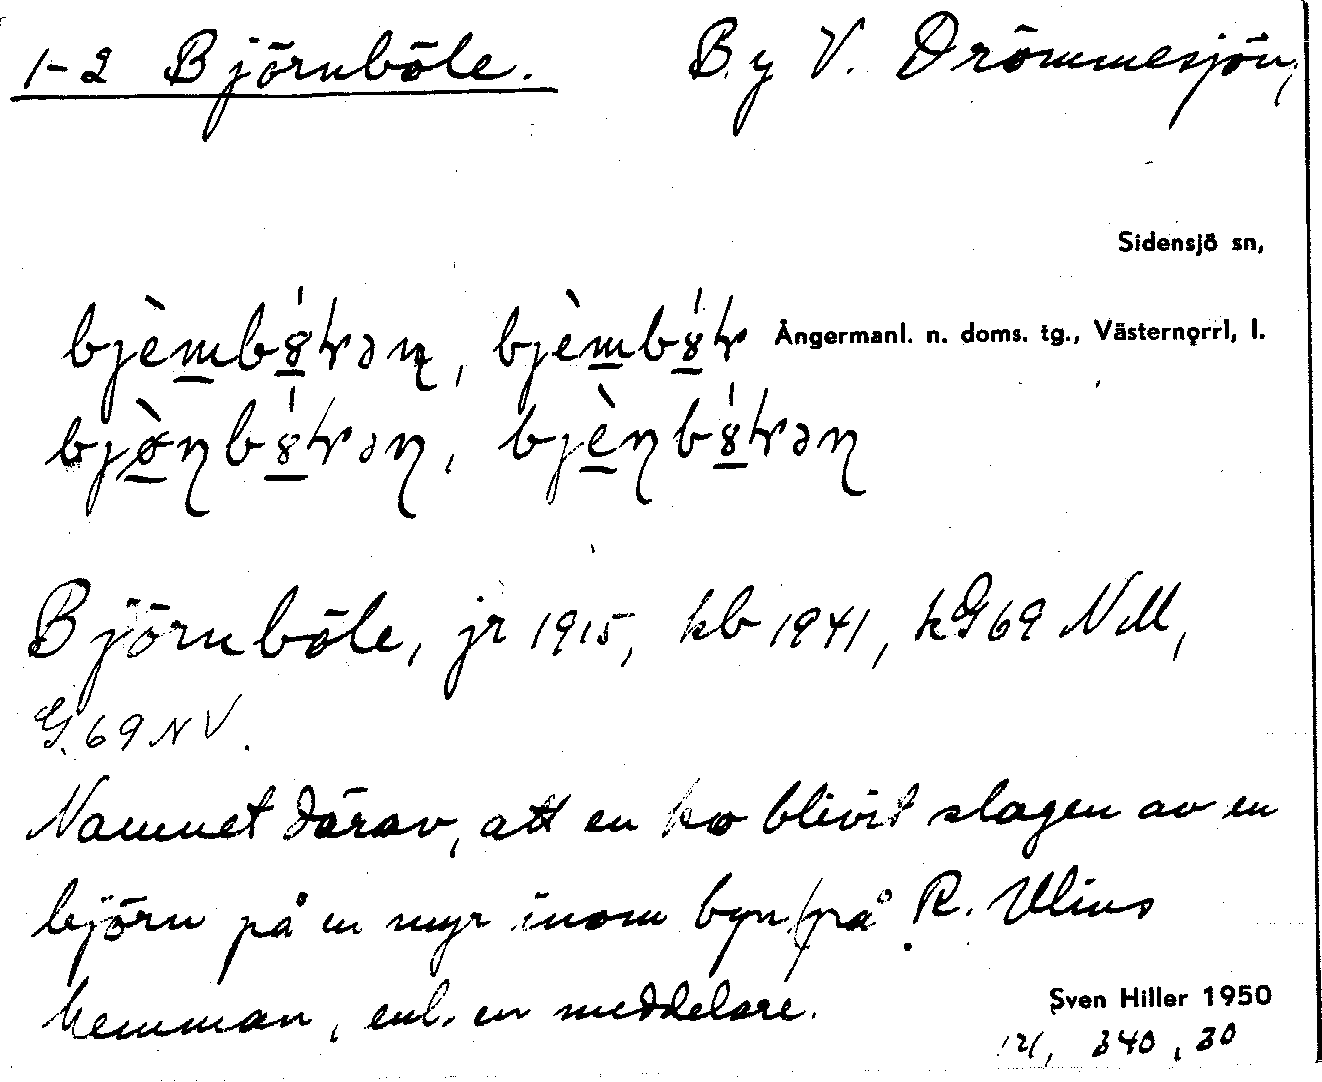 1-2 Björnböle. By V. Drömmesjön,
Sidensjö sn,
Ångermanl. n. doms. tg., Västernorrl, l.
Björnböle, jr 1915, kb 1941, kG69 NM,
G. 69 NV.
Namnet därav, att en ko blivit slagen av en
björn på en myr inom byn (på R.
hemman, enl. en meddelare.
Sven Hiller 1950
121, 340, 30